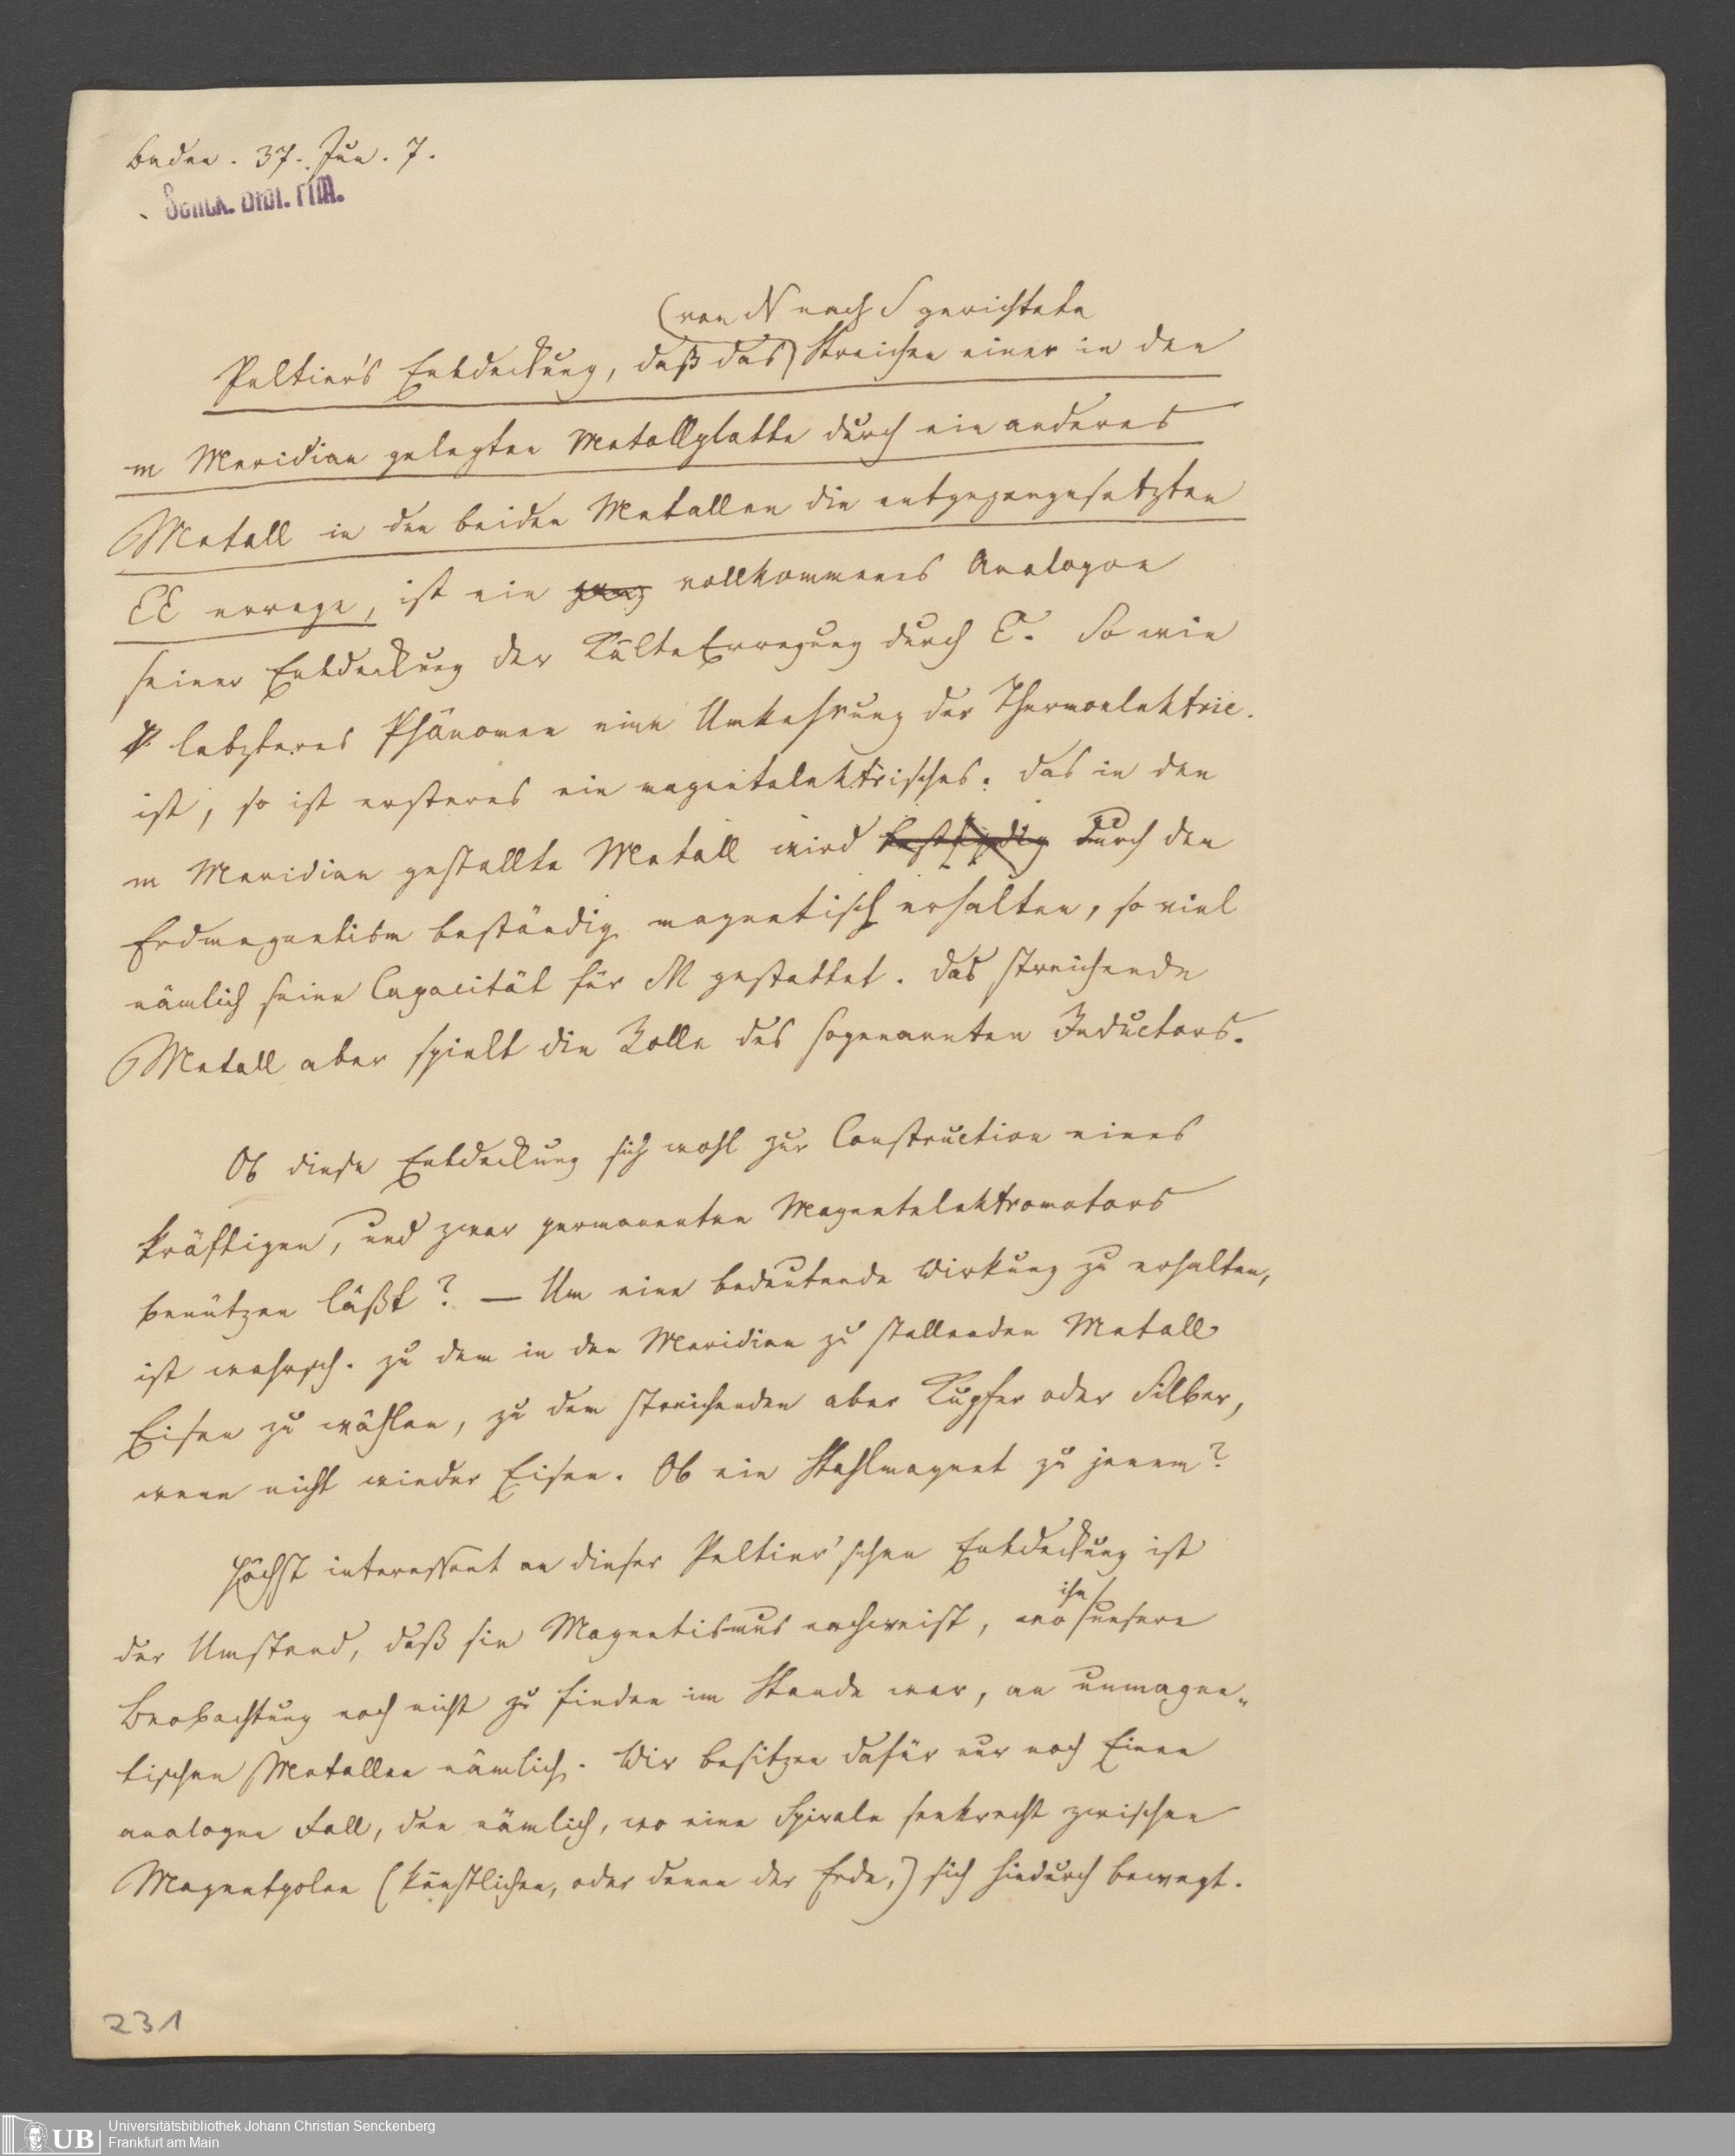 Baden. 37. Jun. 7.
Senck. Bibl. Ffm.
(von N nach S gerichtete
Peltier's Entdeckung, daß das) Streichen einer in den
m Meridian gelegten Metallplatte durch ein anderes
Metall in den beiden Metallen die entgegengesetzten
EE errege, ist ein ganz vollkommenes Analogon
seiner Entdeckung der KälteErregung durch E. So wie
letzteres Phänomen eine Umkehrung der Thermoelektric.
ist, so ist ersteres ein magnetelektrisches. Das in den
m Meridian gestellte Metall wird durch den
Erdmagnetism beständig magnetisch erhalten, so viel
nämlich seine Capacität für M gestattet. Das streichende
Metall aber spielt die Rolle des sogenannten Inductors.
Ob diese Entdeckung sich wohl zur Construction eines
kräftigen, und zwar permanenten Magnetelektromotors
benützen läßt? — Um eine bedeutende Wirkung zu erhalten,
ist wahrsch. zu dem in den Meridian zu stellenden Metall
Eisen zu wählen, zu dem streichenden aber Kupfer oder Silber,
wenn nicht wieder Eisen. Ob ein Stahlmagnet zu jenem?
Höchst interessant an dieser Peltier'schen Entdeckung ist
ihn
der Umstand, daß sie Magnetismus nachweist, wo unsere
Beobachtung noch nicht zu finden im Stande war, an unmagne-
tischen Metallen nämlich. Wir besitzen dafür nur noch Einen
analogen Fall, den nämlich, wo eine Spirale senkrecht zwischen
Magnetpolen (künstlichen, oder denen der Erde,) sich hindurch bewegt.
231
UB Universitätsbibliothek Johann Christian Senckenberg
Frankfurt am Main